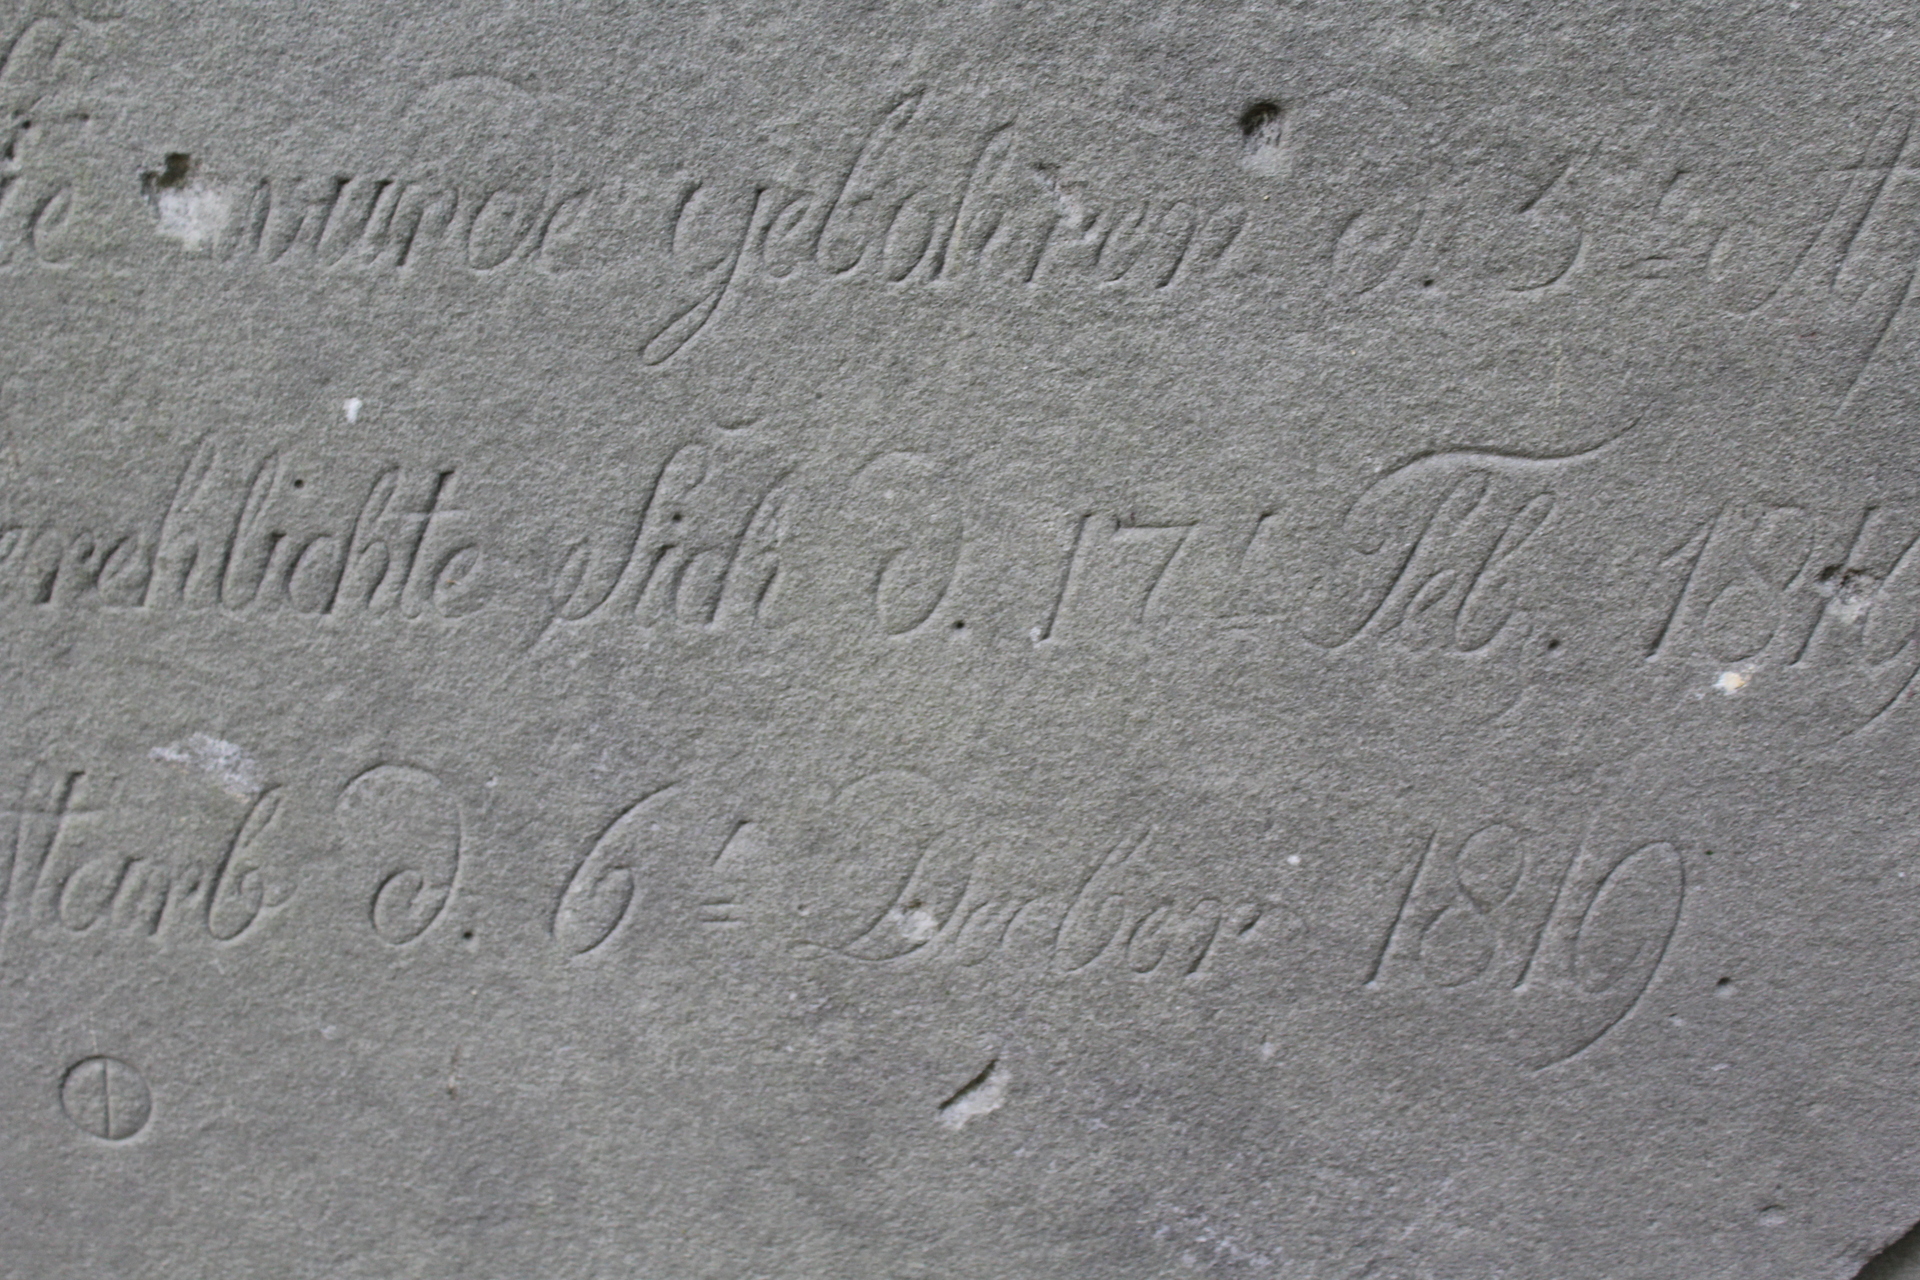 te wurde gebohren d. 5t A
erehlichte sich d. 17t Feb. 181
starb d. 6t Decbr 1819.